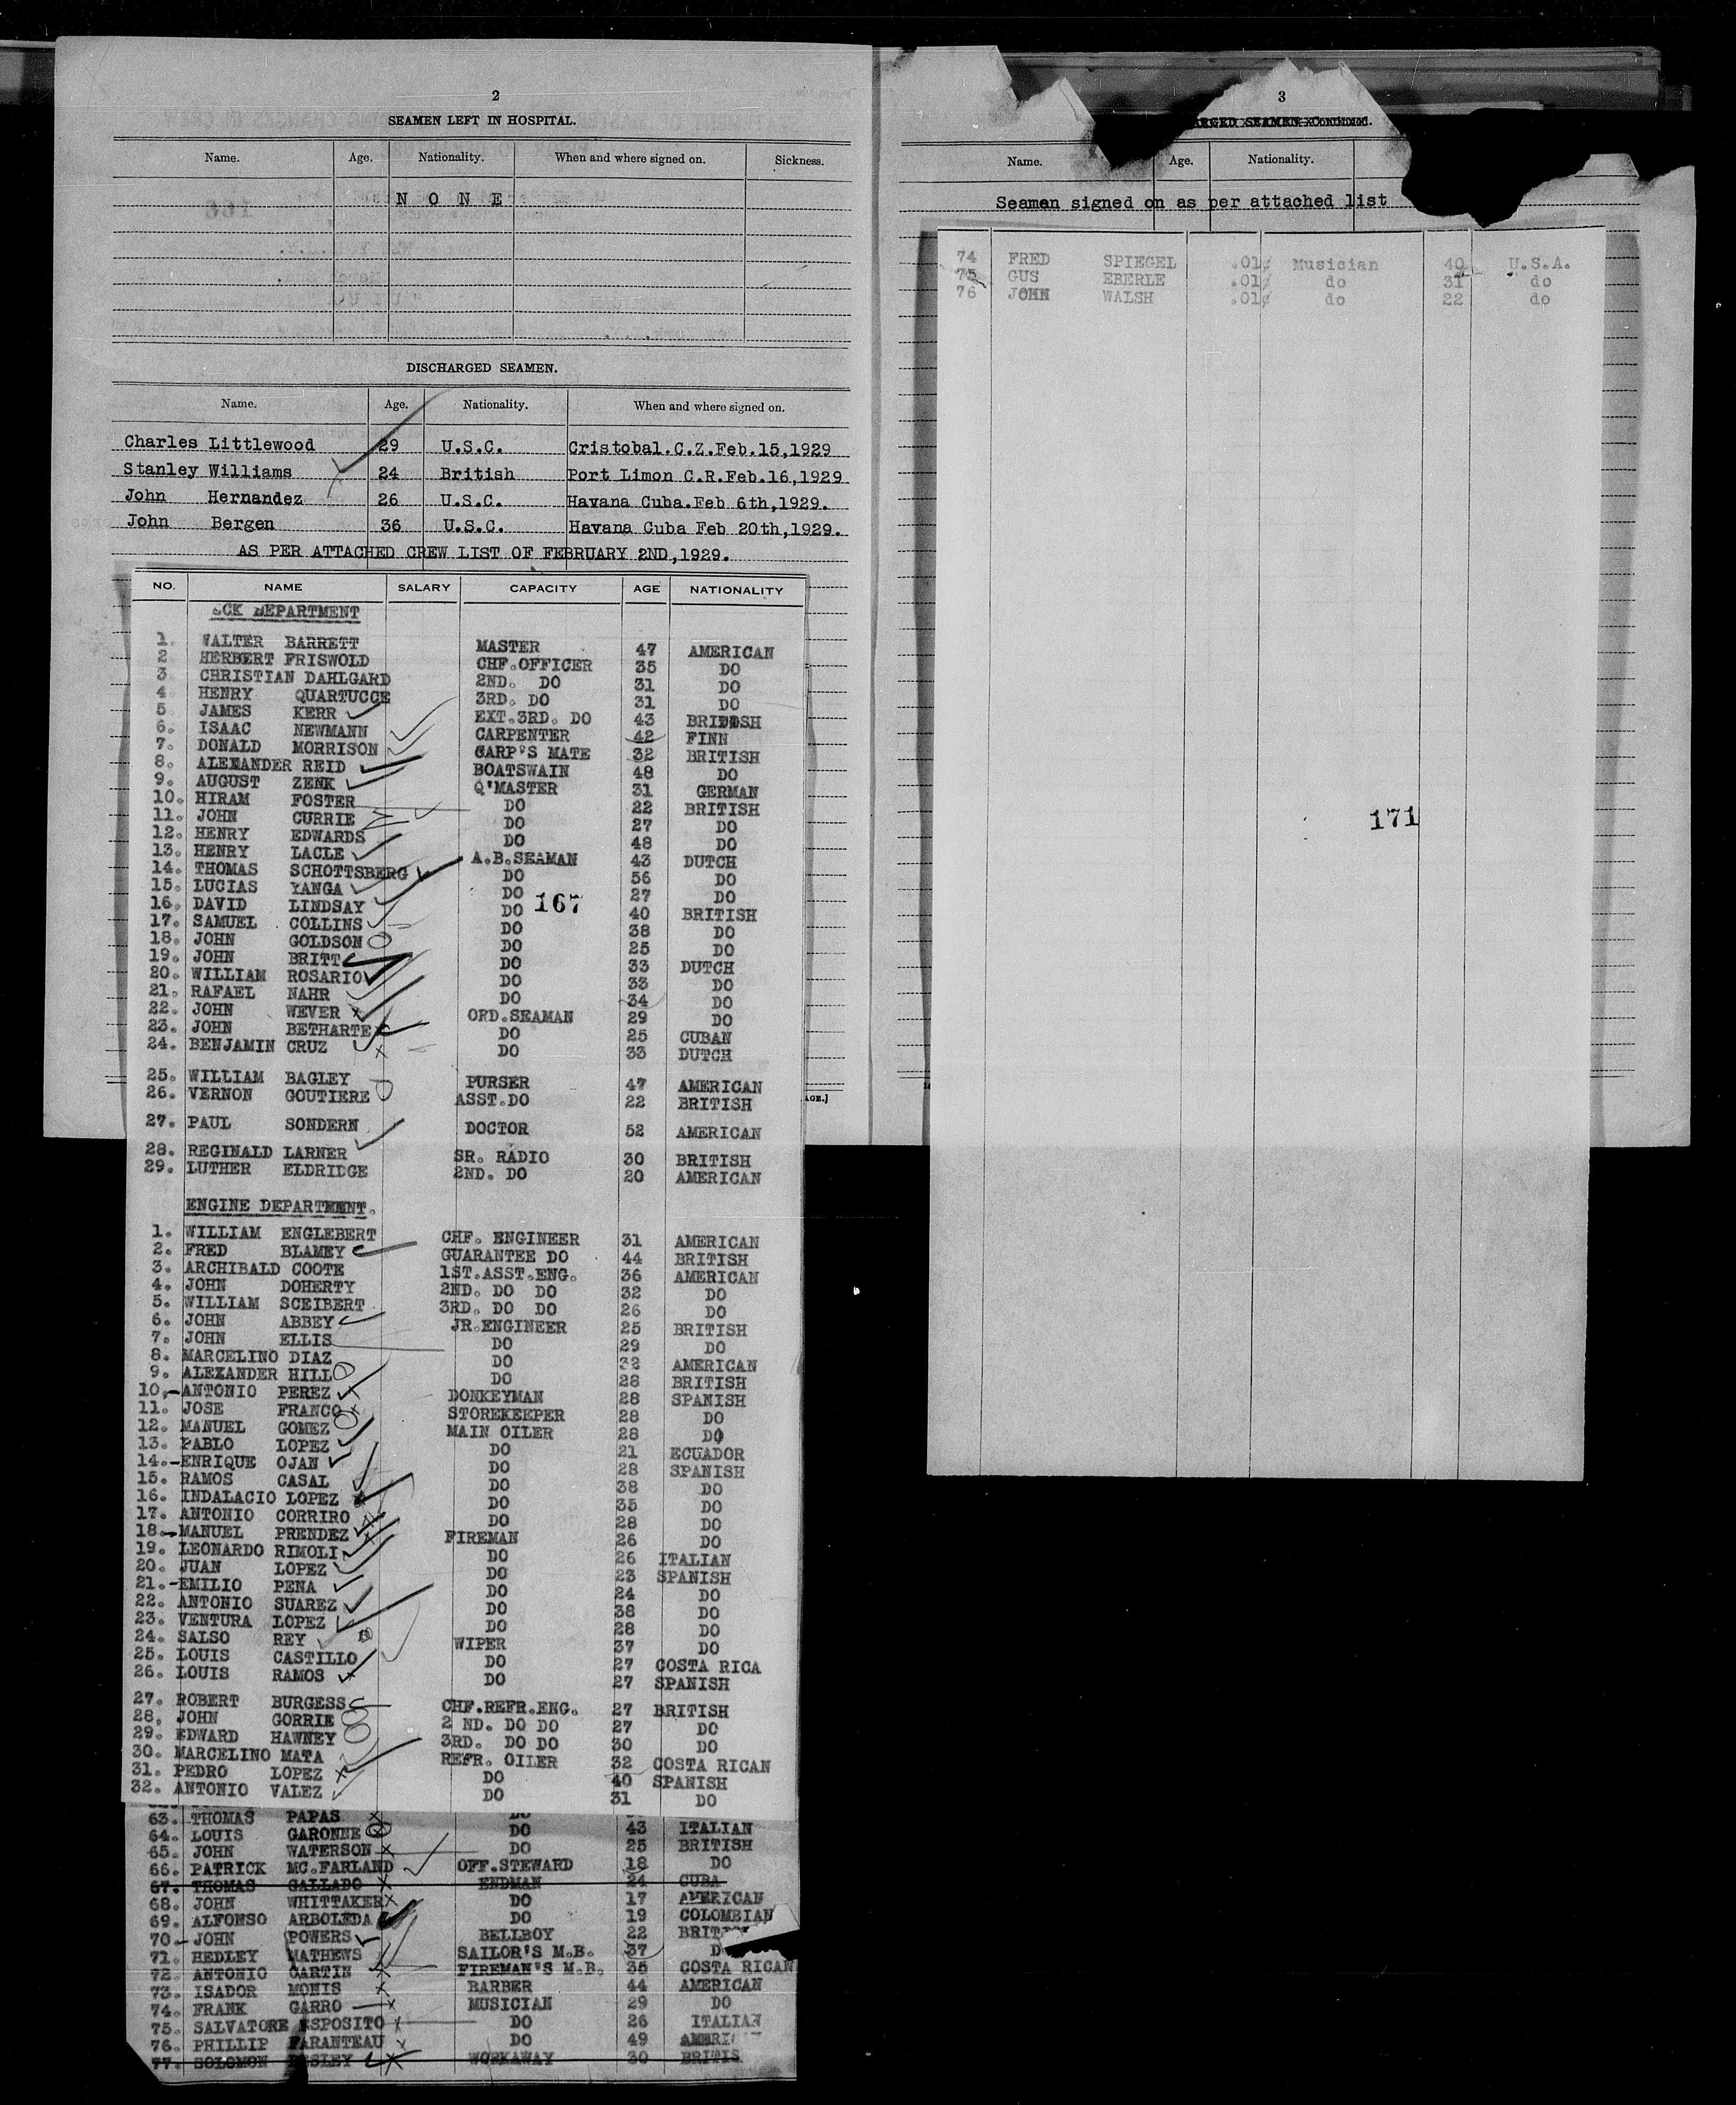 2
SEAMEN LEFT IN HOSPITAL.
Name. Age. Nationality. When and where signed on. Sickness.
N O N E
DISCHARGED SEAMEN.
Name. Age. Nationality. When and where signed on.
Charles Littlewood 29 U.S.C. Cristobal.C.Z.Feb.15,1929
Stanley Williams 24 British Port Limon C.R.Feb.16,1929
John Hernandez 26 U.S.C. Havana Cuba.Feb 6th,1929.
John Bergen 36 U.S.C. Havana Cuba Feb 20th,1929.
AS PER ATTACHED CREW LIST OF FEBRUARY 2ND,1929.
NO. NAME SALARY CAPACITY AGE NATIONALITY
CK DEPARTMENT
1. WALTER BARRETT MASTER 47 AMERICAN
2 HERBERT FRISWOLD CHF.OFFICER 35 DO
3 CHRISTIAN DAHLGARD 2ND. DO 31 DO
4 HENRY QUARTUCCE 3RD. DO 31 DO
5 JAMES KERR EXT.3RD. DO 43
6. ISAAC NEWMANN CARPENTER 42 FINN
7. DONALD MORRISON CARP'S MATE 32 BRITISH
8. ALEXANDER REID BOATSWAIN 48 DO
9. AUGUST ZENK Q'MASTER 31 GERMAN
10. HIRAM FOSTER DO 22 BRITISH
11. JOHN CURRIE DO 27 DO
12. HENRY EDWARDS DO 48 DO
13. HENRY LACLE A.B.SEAMAN 43 DUTCH
14. THOMAS SCHOTTSBERG DO 56 DO
15. LUCIAS YANGA DO 27 DO
16. DAVID LINDSAY DO 167 40 BRITISH
17. SAMUEL COLLINS DO 38 DO
18. JOHN GOLDSON DO 25 DO
19. JOHN BRITT DO 33 DUTCH
20. WILLIAM ROSARIO DO 33 DO
21. RAFAEL NAHR DO 34 DO
22. JOHN WEVER ORD.SEAMAN 29 DO
23. JOHN BETHARTE DO 25 CUBAN
24. BENJAMIN CRUZ DO 33 DUTCH
25. WILLIAM BAGLEY PURSER 47 AMERICAN
26. VERNON GOUTIERE ASST.DO 22 BRITISH
27. PAUL SONDERN DOCTOR 52 AMERICAN
28. REGINALD LARNER SR. RADIO 30 BRITISH
29. LUTHER ELDRIDGE 2ND. DO 20 AMERICAN
ENGINE DEPARTMENT.
1. WILLIAM ENGLEBERT CHF. ENGINEER 31 AMERICAN
2. FRED BLAMEY GUARANTEE DO 44 BRITISH
3. ARCHIBALD COOTE 1ST.ASST.ENG. 36 AMERICAN
4. JOHN DOHERTY 2ND. DO DO 32 DO
5. WILLIAM SCEIBERT 3RD. DO DO 26 DO
6. JOHN ABBEY JR.ENGINEER 25 BRITISH
7. JOHN ELLIS DO 29 DO
8. MARCELINO DIAZ DO 32 AMERICAN
9. ALEXANDER HILL DO 28 BRITISH
10.-ANTONIO PEREZ DONKEYMAN 28 SPANISH
11. JOSE FRANCO STOREKEEPER 28 DO
12. MANUEL GOMEZ MAIN OILER 28 DO
13. PABLO LOPEZ DO 21 ECUADOR
14.-ENRIQUE OJAN DO 28 SPANISH
15. RAMOS CASAL DO 38 DO
16. INDALACIO LOPEZ DO 35 DO
17. ANTONIO CORRIRO DO 28 DO
18.-MANUEL PRENDEZ FIREMAN 26 DO
19. LEONARDO RIMOLI DO 26 ITALIAN
20. JUAN LOPEZ DO 23 SPANISH
21.-EMILIO PENA DO 24 DO
22. ANTONIO SUAREZ DO 38 DO
23. VENTURA LOPEZ DO 28 DO
24. SALSO REY WIPER 37 DO
25. LOUIS CASTILLO DO 27 COSTA RICA
26. LOUIS RAMOS DO 27 SPANISH
27. ROBERT BURGESS CHF.REFR.ENG. 27 BRITISH
28, JOHN GORRIE 2 ND. DO DO 27 DO
29. EDWARD HAWNEY 3RD. DO DO 30 DO
30. MARCELINO MATA REFR. OILER 32 COSTA RICAN
31. PEDRO LOPEZ DO 40 SPANISH
32. ANTONIO VALEZ DO 31 DO
63. THOMAS PAPAS DO
64. LOUIS GARONNE DO 43 ITALIAN
65. JOHN WATERSON DO 25 BRITISH
66. PATRICK MC.FARLAND OFF.STEWARD 18 DO
67. THOMAS GALLADO ENDMAN 24 CUBA
68. JOHN WHITTAKER DO 17 AMERICAN
69. ALFONSO ARBOLEDA DO 19 COLOMBIAN
70.- JOHN POWERS BELLBOY 22 BRIT
71. HEDLEY MATHEWS SAILOR'S M.B. 37 D
72. ANTONIO CARTIN FIREMAN'S M.B. 35 COSTA RICAN
73. ISADOR MONIS BARBER 44 AMERICAN
74. FRANK GARRO MUSICIAN 29 DO
75. SALVATORE ESPOSITO DO 26 ITALIAN
76. PHILLIP PARANTEAU DO 49 AMERI
77. SOLOMON WORKAWAY 30 BRITIS
AGE.]
3
ARGED SEAMEN-Continued.
Name. Age. Nationality.
Seamen signed on as per attached list
74 FRED SPIEGEL .01¢ Musician 40 U.S.A.
75 GUS EBERLE .01¢ do 31 do
76 JOHN WALSH .01¢ do 22 do
171